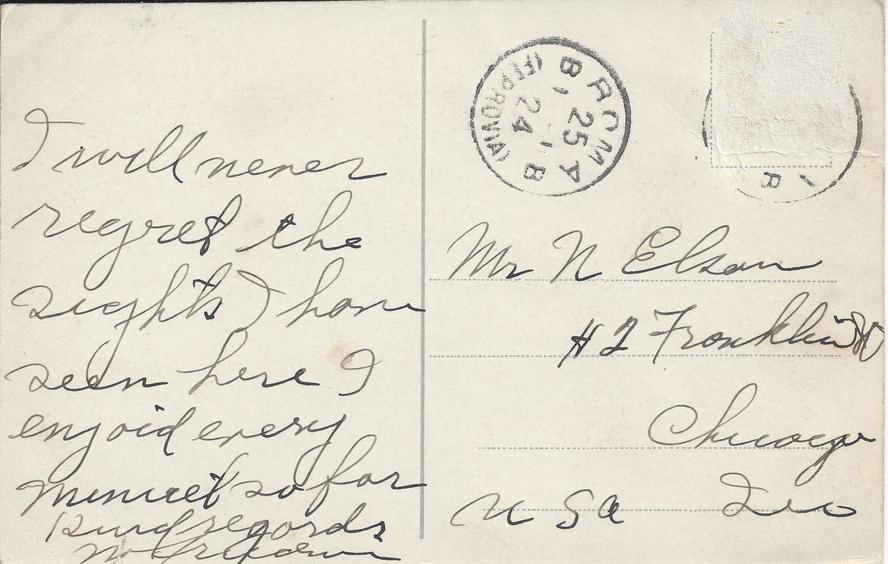 I will never
regret the
sights I have
seen here I
enjoid every
minuet so far
kind regards
ROMA
B 25 B
1 24
(FERROVIA)
Mr N Elson
Franklin
Chicago
USA